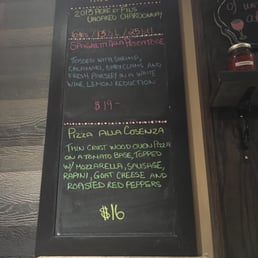 2013 PERE ET FILS
UNOAKED CHARDONNAY
SPAGHETTI ALLA PESCATORE
TOSSED WITH SHRIMP,
CALAMARI, BABY CLAMS AND
FRESH PARSLEY IN A WHITE
WINE LEMON REDUCTION
$19-
PIZZA ALLA COSENZA
THIN CRUST WOOD OVEN PIZZA
ON A TOMATO BASE, TOPPED
W/ MOZZARELLA, SAUSAGE,
RAPINI, GOAT CHEESE AND
ROASTED RED PEPPERS
$16